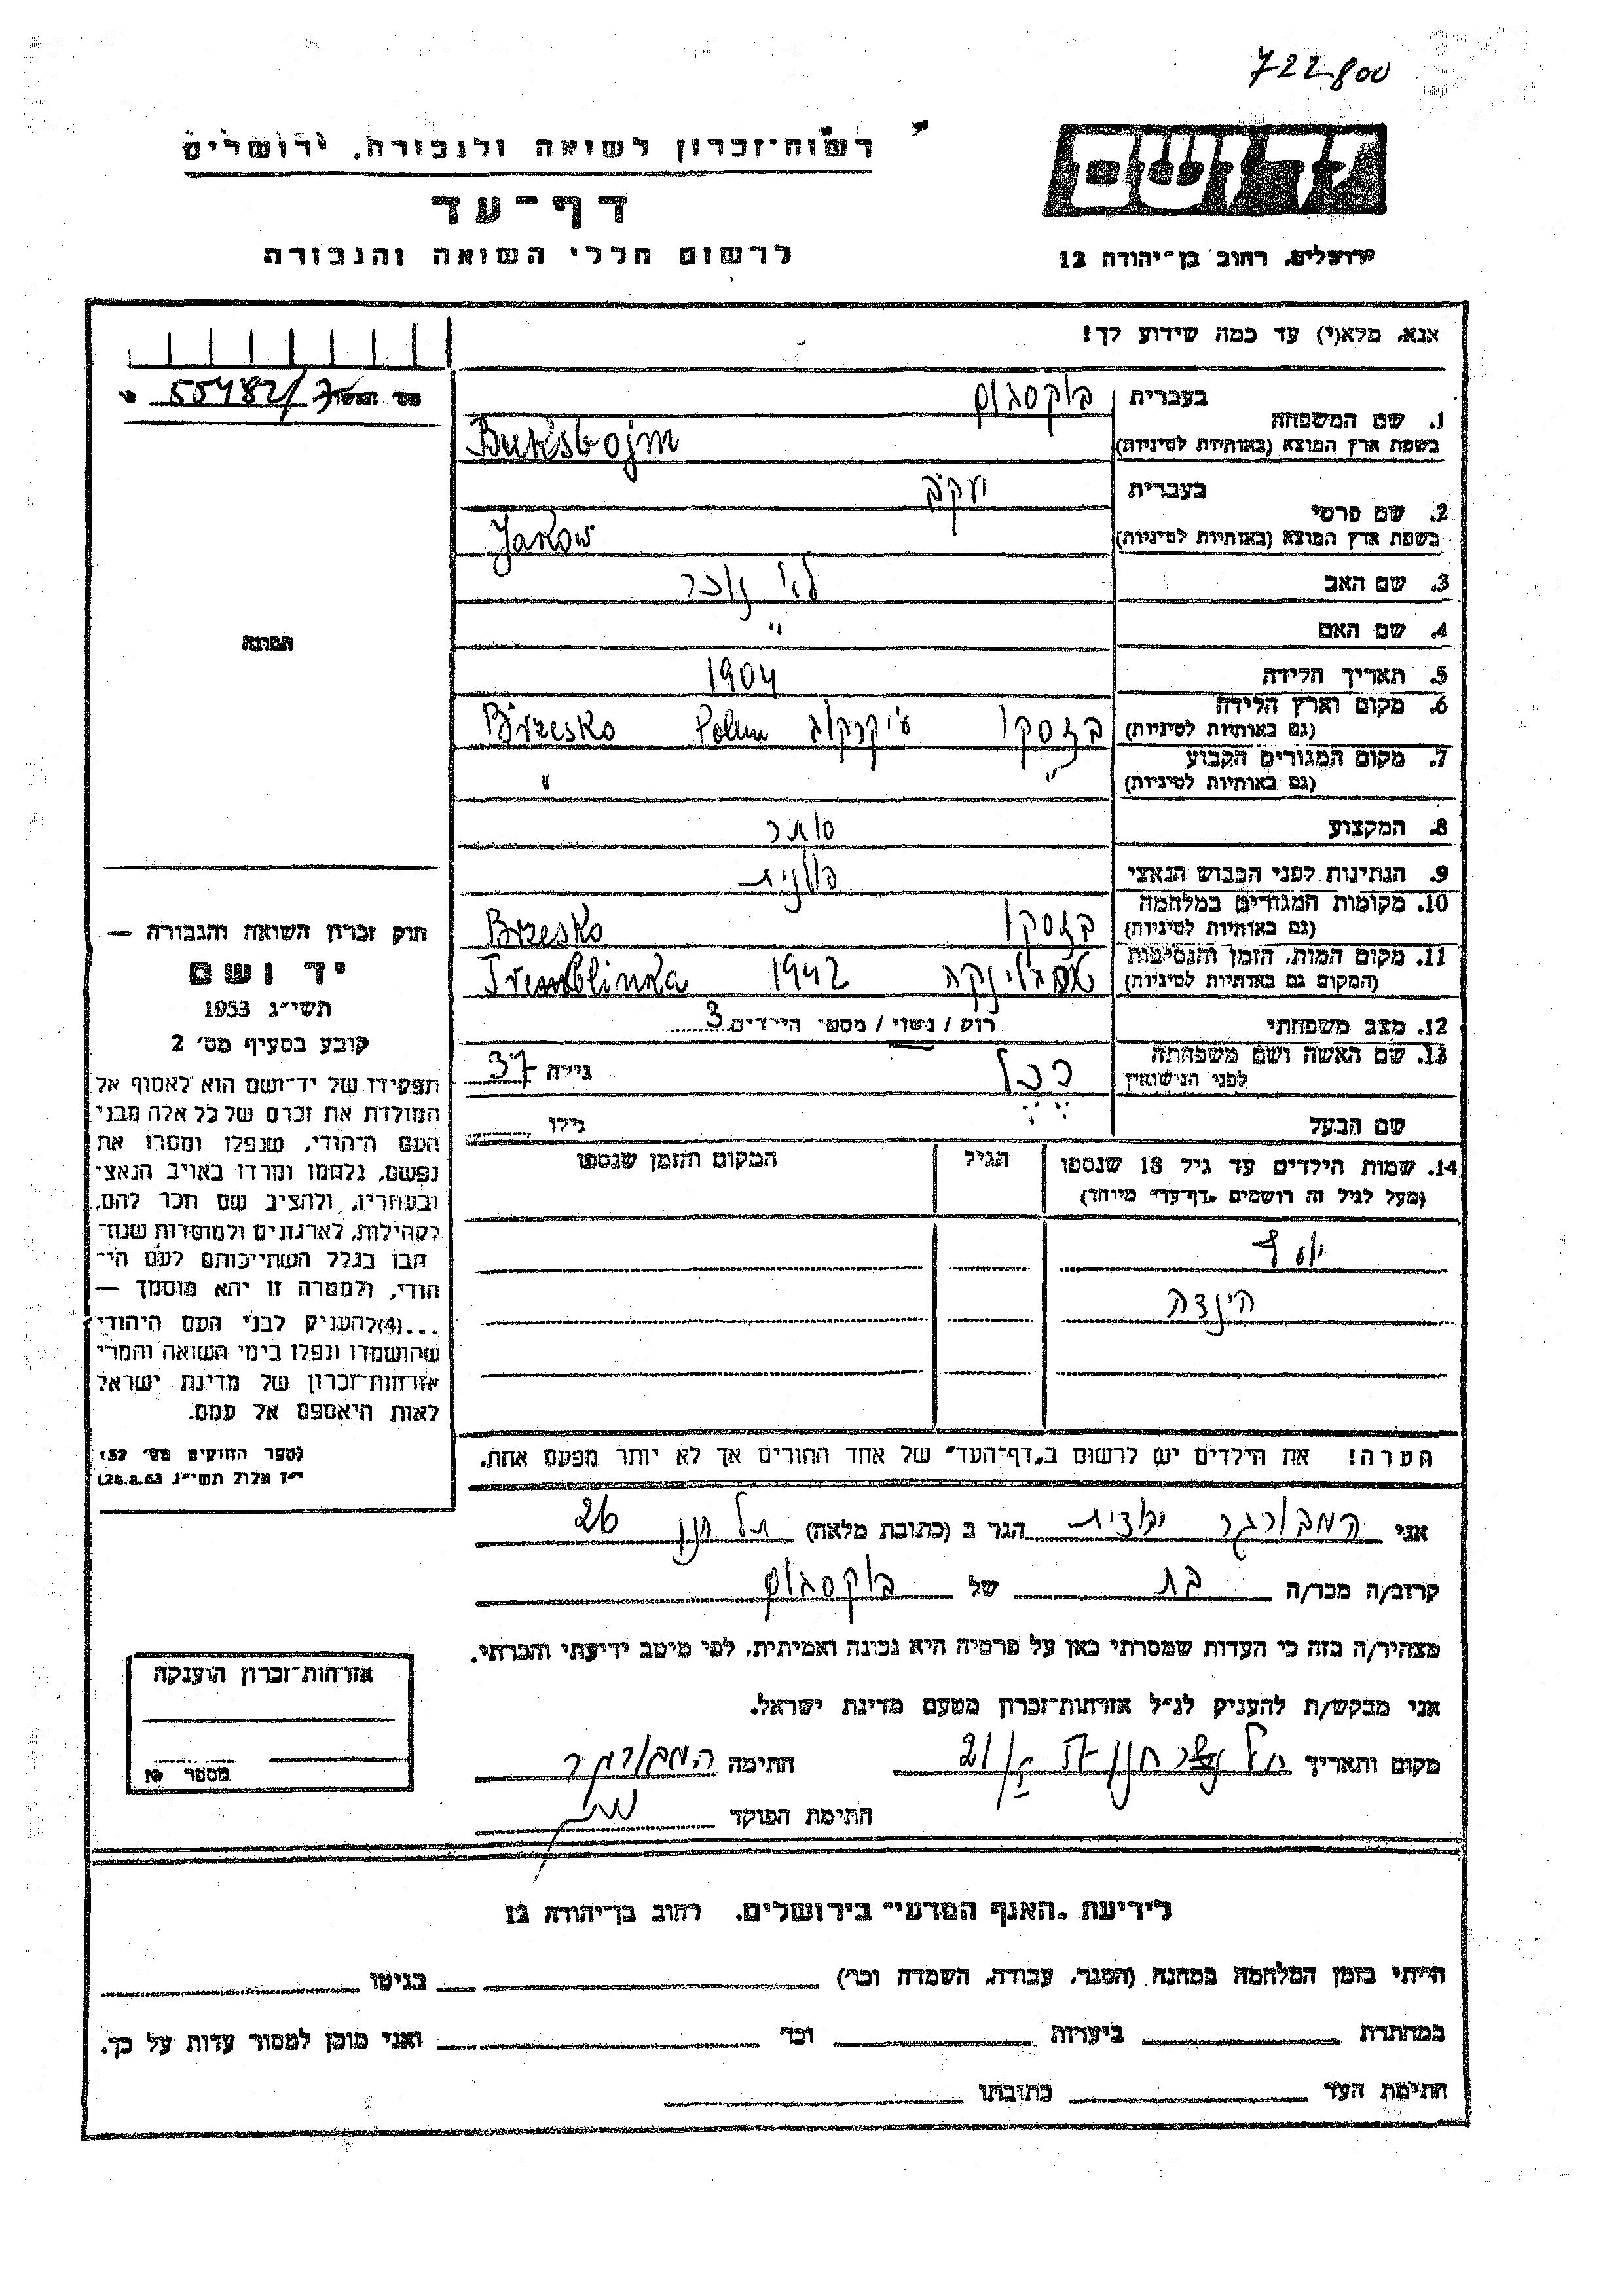 722800
רשות-זכרון לשואה ולגבורה, ירושלים
דף-עד
לרשום חללי השואה והגבורה
יד ושם
ירושלים, רחוב בן-יהודה 12
אנא, מלא(י) עד כמה שידוע לך!
55482/
1. שם המשפחה
בעברית
בוקסבוים
בשפת ארץ המוצא (באותיות לטיניות)
Buksbojm
2. שם פרטי
בעברית
יעקב
בשפת ארץ המוצא (באותיות לטיניות)
Jakow
3. שם האב לא זוכר
4. שם האם "
5. תאריך הלידה 1904
6. מקום וארץ הלידה
(גם באותיות לטיניות)
בזסקו Brzesko
7. מקום המגורים הקבוע
(גם באותיות לטיניות)
" "
8. המקצוע סוחר
9. הנתינות לפני הכבוש הנאצי פולנית
10. מקומות המגורים במלחמה
(גם באותיות לטיניות)
בזסקו Brzesko
11. מקום המות, הזמן והנסיבות
(המקום גם באותיות לטיניות)
1942 Tremblinka
12. מצב משפחתי רווק / נשוי / מספר הילדים 3
13. שם האשה ושם משפחתה
לפני הנישואין
רחל גילה 37
שם הבעל גילו
14. שמות הילדים עד גיל 18 שנספו
(מעל לגיל זה רושמים "דף-עד" מיוחד)
הגיל
המקום והזמן שנספו
יוסף
הינדה
הערה! את הילדים יש לרשום ב"דף-העד" של אחד ההורים אך לא יותר מפעם אחת.
התמונה
חוק זכרון השואה והגבורה —
יד ושם
תשי"ג 1953
קובע בסעיף מס' 2
תפקידו של יד-ושם הוא לאסוף אל
המולדת את זכרם של כל אלה מבני
העם היהודי, שנפלו ומסרו את
נפשם, נלחמו ומרדו באויב הנאצי
ובעוזריו, ולהציב שם וזכר להם,
לקהילות, לארגונים ולמוסדות שנח-
רבו בגלל השתייכותם לעם הי-
הודי, ולמטרה זו יהא מוסמך —
...(4) להעניק לבני העם היהודי
שהושמדו ונפלו בימי השואה והמרי
אזרחות-זכרון של מדינת ישראל
לאות היאספם אל עמם.
(ספר החוקים מס' 132
י"ז אלול תשי"ג 28.8.53)
אני המבורגר יהודית הגר ב (כתובת מלאה) תל חנן 26
קרוב/ה מכר/ה בת של בוקסבוים
מצהיר/ה בזה כי העדות שמסרתי כאן על פרטיה היא נכונה ואמיתית, לפי מיטב ידיעתי והכרתי.
אני מבקש/ת להעניק לנ"ל אזרחות-זכרון מטעם מדינת ישראל.
מקום ותאריך תל חנן חתימה המבורגר
חתימת הפוקד
אזרחות-זכרון הוענקה
מספר №
לידיעת "האגף המדעי" בירושלים, רחוב בן-יהודה 12
הייתי בזמן המלחמה במחנה (הסגר, עבודה, השמדה וכו') בגיטו
במחתרת ביערות וכו' ואני מוכן למסור עדות על כך.
חתימת העד כתובתו